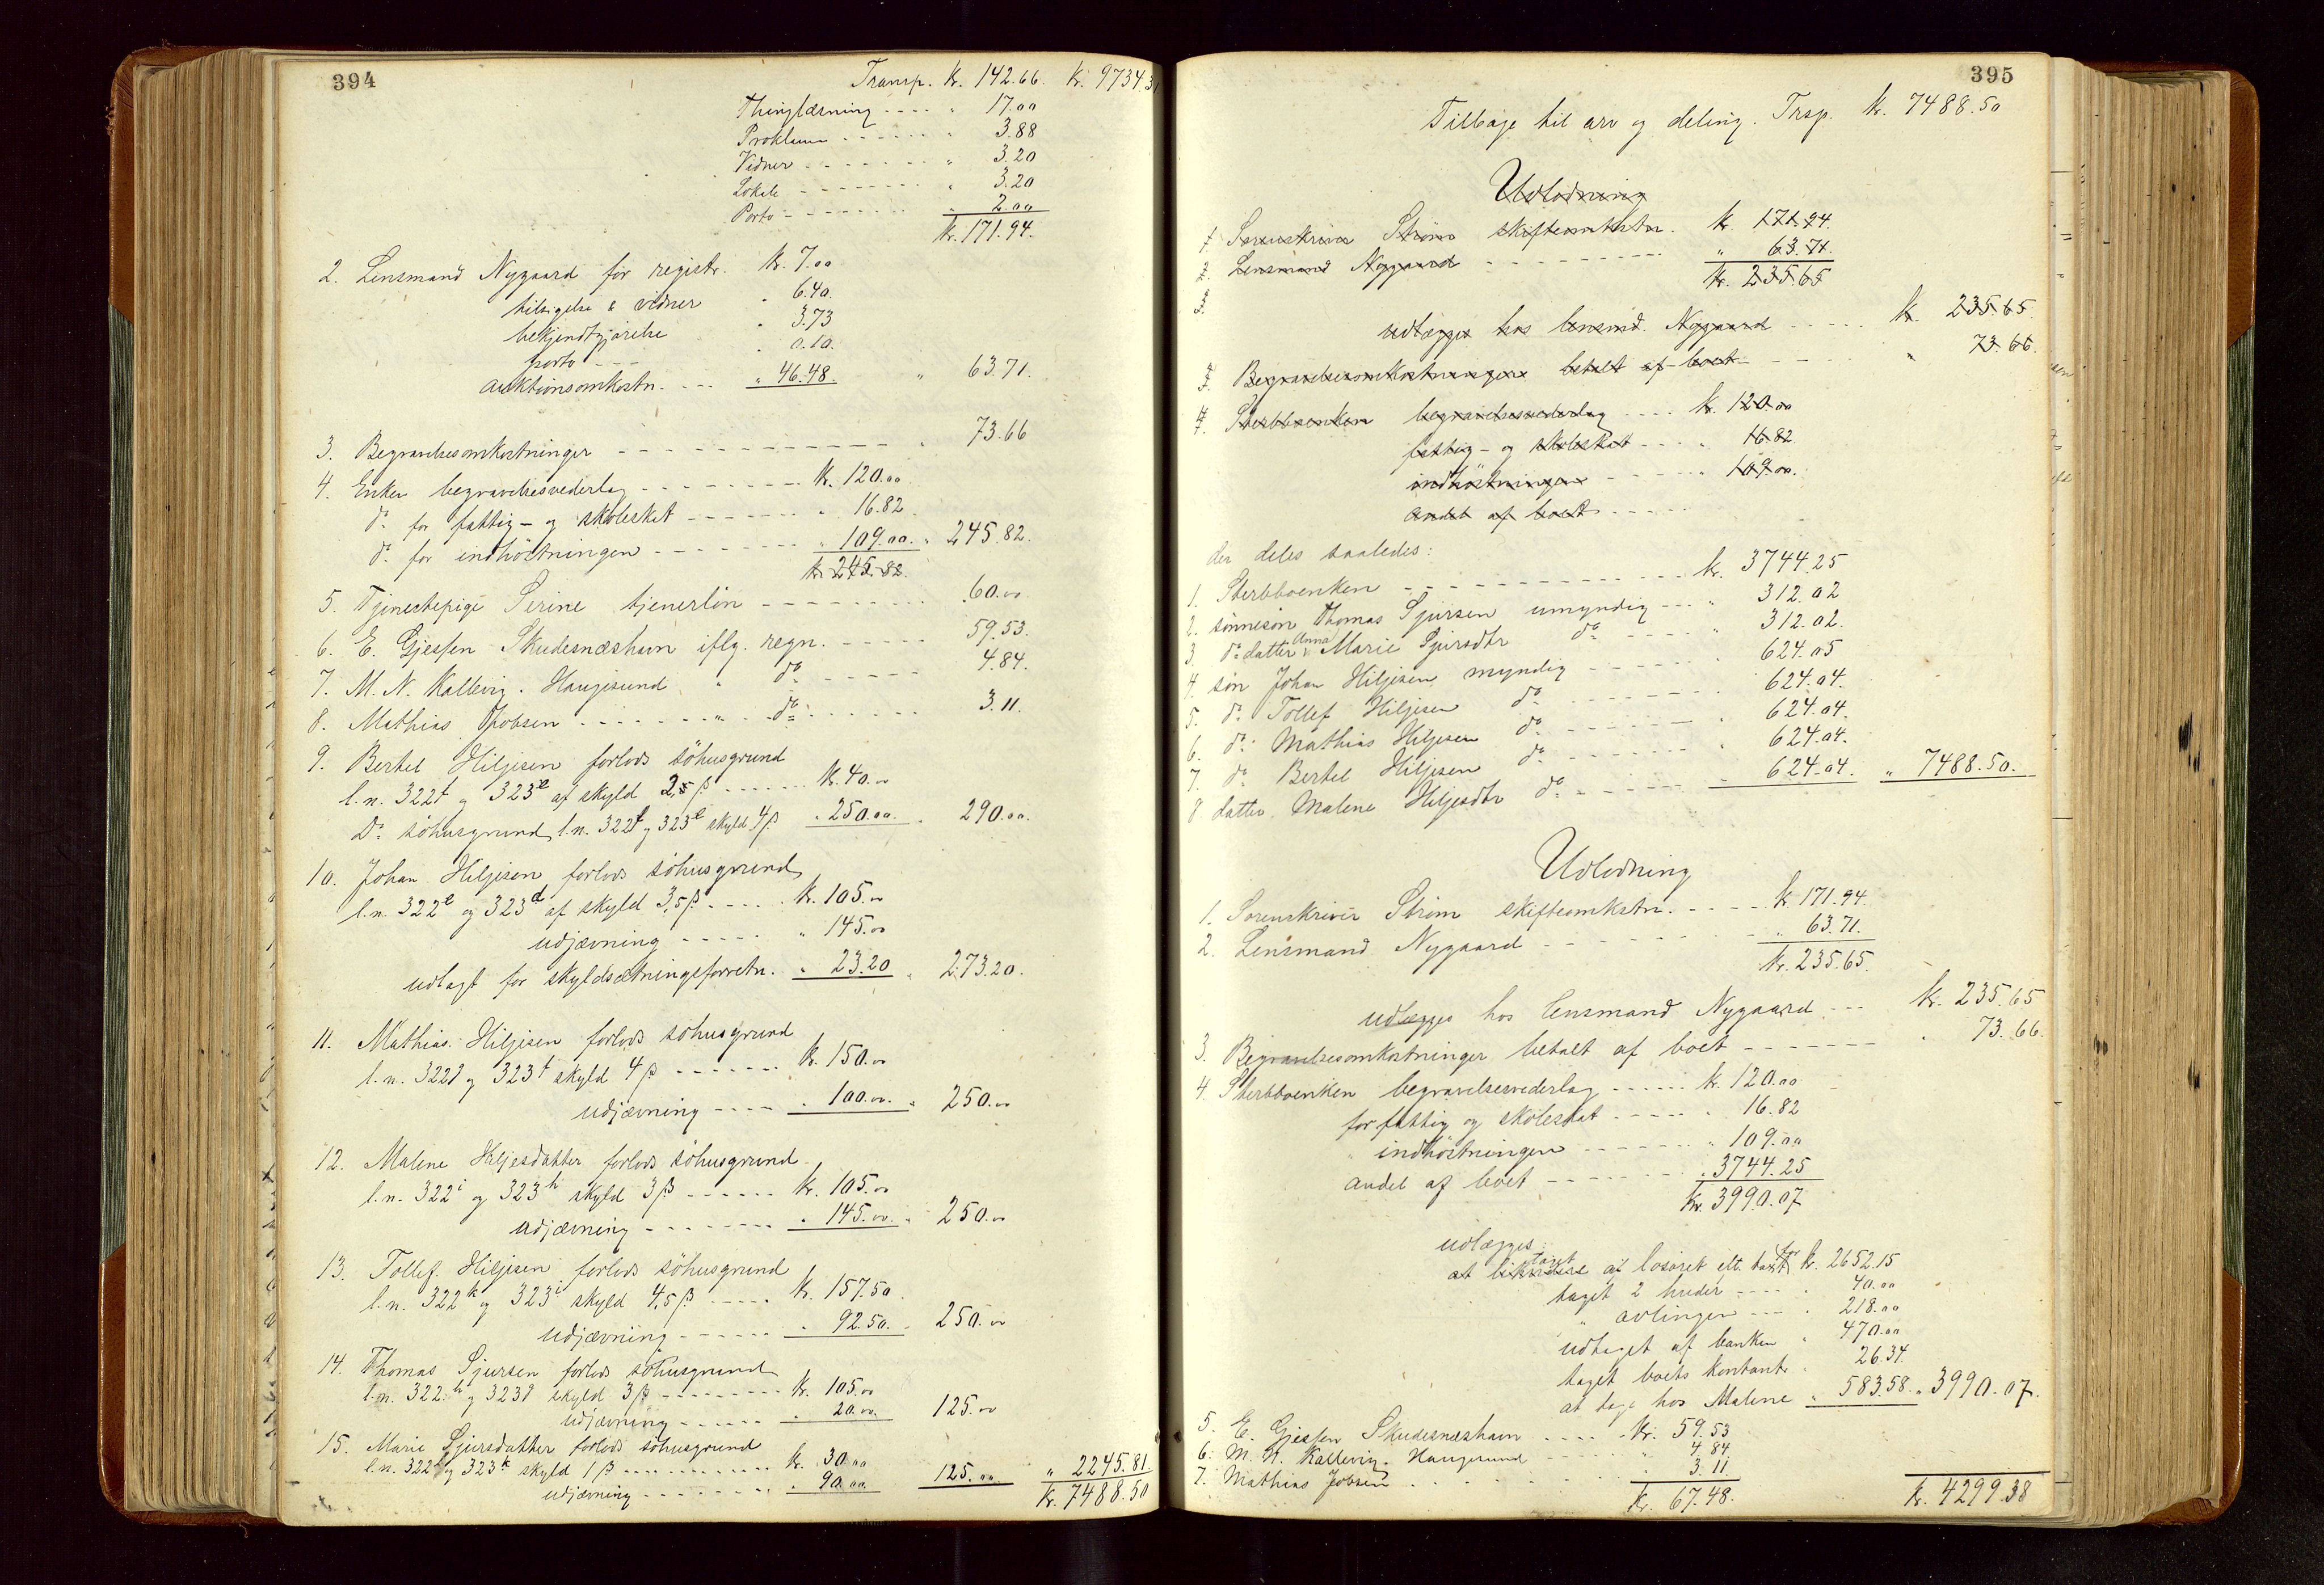 394
Transp. Kr. 142.66. Kr. 9734.31
Thinglæsning ---- " 17.00
Proklama ------ " 3.88
Vidner ------- " 3.20
Lokale ------- " 3.20
Porto ------- " 2.00
Kr. 171.94.
2. Lensmand Nygaard for registr. Kr. 7.00
tilsigelse & vidner " 6.40.
bekjendtgjørelse " 3.73
porto --- " 0.10.
auktionsomkostn. --- " 46.48. " 63.71.
3. Begravelsesomkostninger ---------- " 73.66
4. Enken begravelsesvederlag ------ Kr. 120.00
do for fattig- og skoleskat ------ " 16.82
do for indhøstningen ------ " 109.00. " 245.82.
Kr. 245.82.
5. Tjenestepige Serine tjenerløn -------- 60.00
6. E. Gjessen Skudesnæshavn iflg. regn. ----- 59.53.
7. M. N. Kallevig. Haugesund " do ------ 4.84.
8. Mathias Jobsen ------ " do ------ 3.11.
9. Bertel Hiljesen forlods söhusgrund
l.n. 322f og 323e af skyld 2,5 ß ------ Kr. 40.00
Do söhusgrund l.n. 322f og 323e skyld 4 ß " 250.00. " 290.00.
10. Johan Hiljesen forlods söhusgrund
l.n. 322e og 323d af skyld 3,5 ß ---- Kr. 105.00
udjævning ----- " 145.00
udlagt for skyldsætningsforretn. " 23.20 " 273.20.
11. Mathias Hiljesen forlods söhusgrund
l.n. 322g og 323f skyld 4 ß ------ Kr. 150.00
udjævning ---- " 100.00. " 250.00
12. Malene Hiljesdatter forlods söhusgrund
l.n. 322i og 323h skyld 3 ß ------ Kr. 105.00
udjævning ------ " 145.00. " 250.00
13. Tollef Hiljesen forlods söhusgrund
l.n. 322k og 323i skyld 4,5 ß ----- Kr. 157.50
udjævning ------ " 92.50. " 250.00
14. Thomas Sjursen forlods söhusgrund
l.n. 322h og 323g skyld 3 ß ------- Kr. 105.00
udjævning ----- " 20.00. 125.00
15. Marie Sjursdatter forlods söhusgrund
l.n. 322l og 323k skyld 1 ß -------- Kr. 30.00
udjævning ------- " 90.00. 125.00 " 2245.81.
Kr. 7488.50
395
Tilbage til arv og deling. Trsp. Kr. 7488.50
Udlodning
1. Sorenskriver Strøm skifteomkstn. Kr. 171.94.
2. Lensmand Nygaard -------- " 63.71.
Kr. 235.65
3.
udlægges hos lensmd. Nygaard ----- Kr. 235.65.
3. Begravelsesomkostninger betalt af boet ---- " 73.66.
4. Sterbboenken begravelsesvederlag ---- Kr. 120.00
fattig- og skoleskat ---- " 16.82.
indhøstningen ----- " 109.00.
andel af boet -----
der deles saaledes:
1. Sterbboenken ----------- Kr. 3744.25
2. sønnesøn Thomas Sjursen umyndig --- " 312.02
3. do datter Anna Marie Sjursdtr do ----- " 312.02.
4. søn Johan Hiljesen myndig ------ " 624.05
5. do Tollef Hiljesen do ------ " 624.04.
6. do Mathias Hiljesen do ------ " 624.04.
7. do Bertel Hiljesen do ------ " 624.04.
8 datter Malene Hiljesdtr do ------ " 624.04. " 7488.50.
Udlodning
1. Sorenskriver Strøm skifteomkstn. ---- Kr. 171.94.
2. Lensmand Nygaard -------- " 63.71.
Kr. 235.65.
udlægges hos lensmand Nygaard --- Kr. 235.65
3. Begravelsesomkostninger betalt af boet ------- " 73.66.
4. Sterbboenken begravelsesvederlag ------ Kr. 120.00
for fattig og skoleskat ----- " 16.82
" indhøstningen ------ " 109.00
andel af boet ------ " 3744.25
Kr. 3990.07
udlægges:
taget af løsøret eft. takst for Kr. 2652.15
taget 2 huder ---- " 40.00
" avlingen --- " 218.00
udtaget af banken " 470.00
taget boets kontant. " 26.34.
at tage hos Malene " 583.58. " 3990.07.
5. E. Gjessen Skudesnæshavn ---- Kr. 59.53
6. M. N. Kallevig. Haugesund ------ " 4.84.
7. Mathias Jobsen ------- " 3.11.
Kr. 67.48. Kr. 4299.38